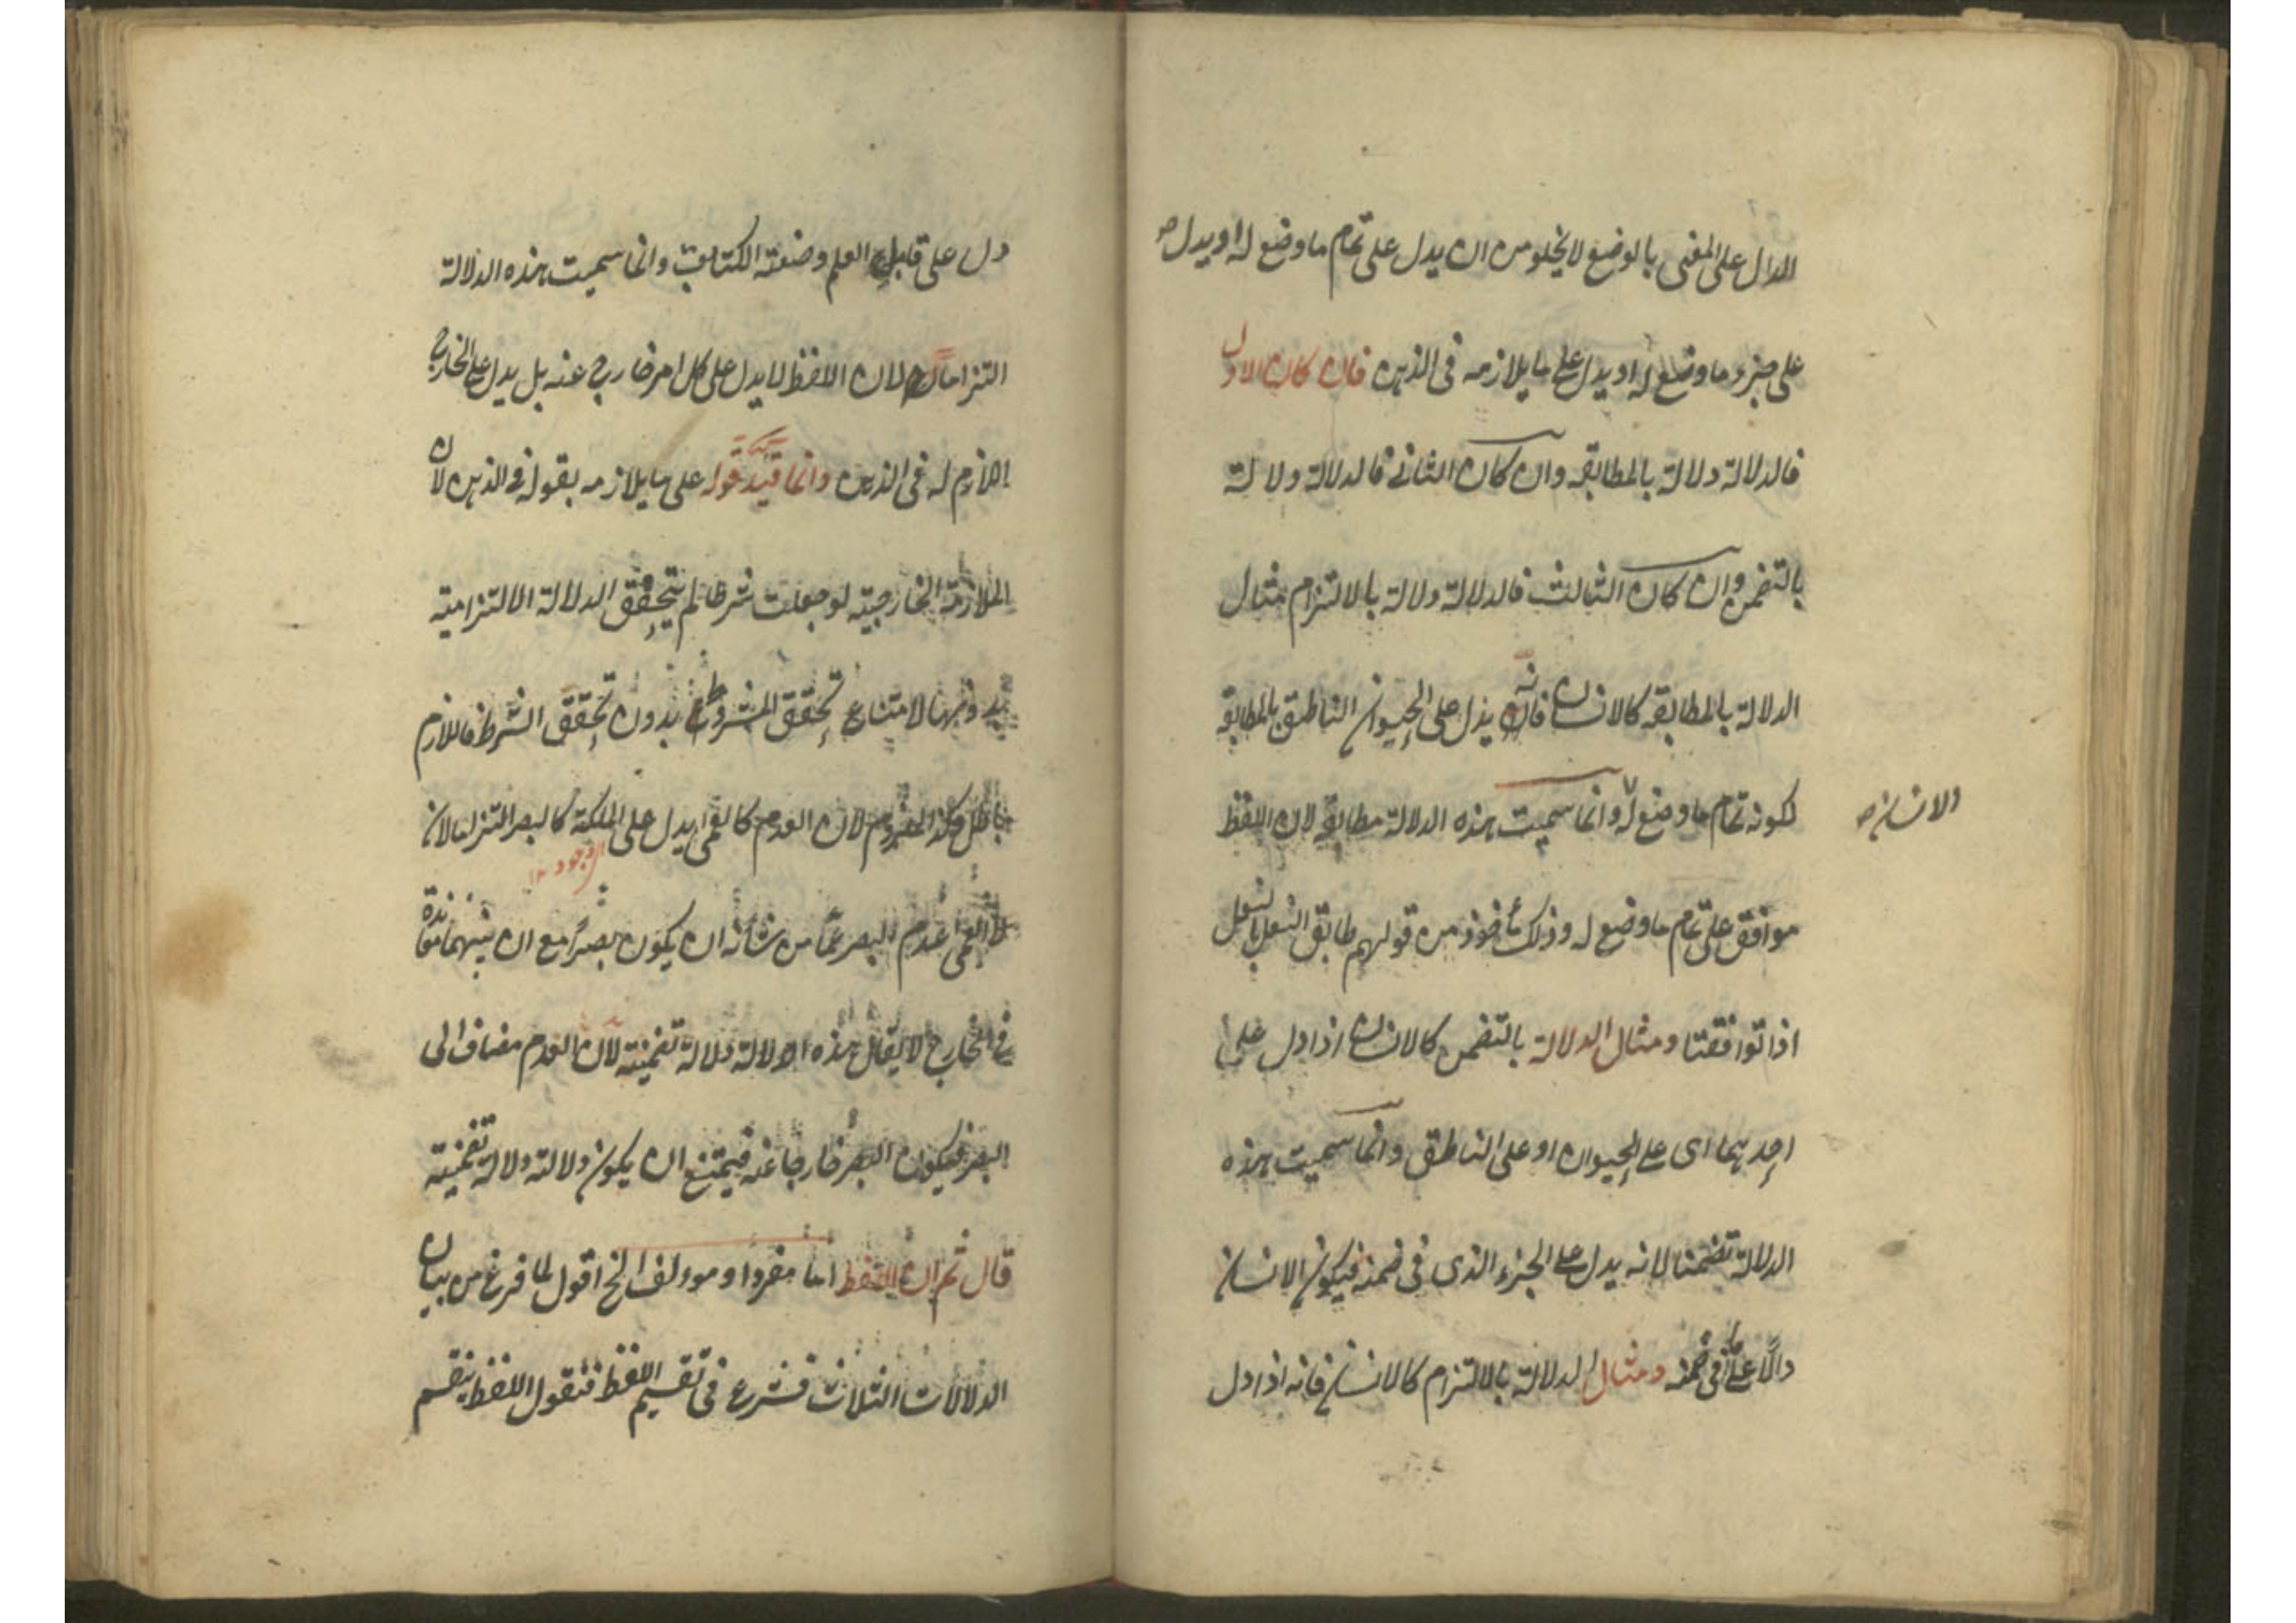 الدال على المعنى بالوضع لا يخلو من ان يدل على تمام ما وضع له او يدل
على جزء ما وضع له او يدل على ما يلازمه فى الذهن فان كان الاول
فالدلالة دلالة بالمطابقه وان كان الثانى فالدلالة دلالة
بالتضمن وان كان الثالث فالدلالة دلالة بالالتزام مثال
الدلالة بالمطابقه كالانسان فانه يدل على الحيوان الناطق بالمطابقة
لكونه تمام ما وضع له وانما سميت هذه الدلالة مطابقة لان اللفظ
والانسان
موافق على تمام ما وضع له وذلك مأخوذ من قولهم طابق النعل بالنعل
اذا توافقتا ومثال الدلالة بالتضمن كالانسان اذا دل على
احدهما اى على الحيوان او على الناطق وانما سميت هذه
الدلالة تضمنا لانه يدل على الجزء الذى فى ضمنه فيكون الانسان
دالا على ما فى ضمنه ومثال الدلالة بالالتزام كالانسان فانه اذا دل
دل على قابل العلم وصنعة الكتابة وانما سميت هذه الدلالة
التزاما لان اللفظ لا يدل على كل امر خارج عنه بل يدل على الخارج
اللازم له فى الذهن وانما قيد قوله على ما يلازمه بقوله فى الذهن لان
الملازمة الخارجية لو جعلت شرطا لم يتحقق الدلالة الالتزامية
بدونها لامتناع تحقق المشروط بدون تحقق الشرط فاللازم
باطل وكذا الملزوم لان العدم كالعمى يدل على الملكة كالبصر التزاما لان
الوجود
العمى عدم البصر عما من شأنه ان يكون بصيرا مع ان بينهما معاندة
فى الخارج لا يقال هذه الدلالة دلالة تضمنية لان العدم مضاف الى
البصر فيكون البصر خارجا عنه فيمتنع ان يكون دلالته دلالة تضمنية
قال ثم ان اللفظ اما مفرد او موولف الخ اقول لما فرغ من بيان
الدلالات الثلاث فشرع فى تقسيم اللفظ فنقول اللفظ ينقسم